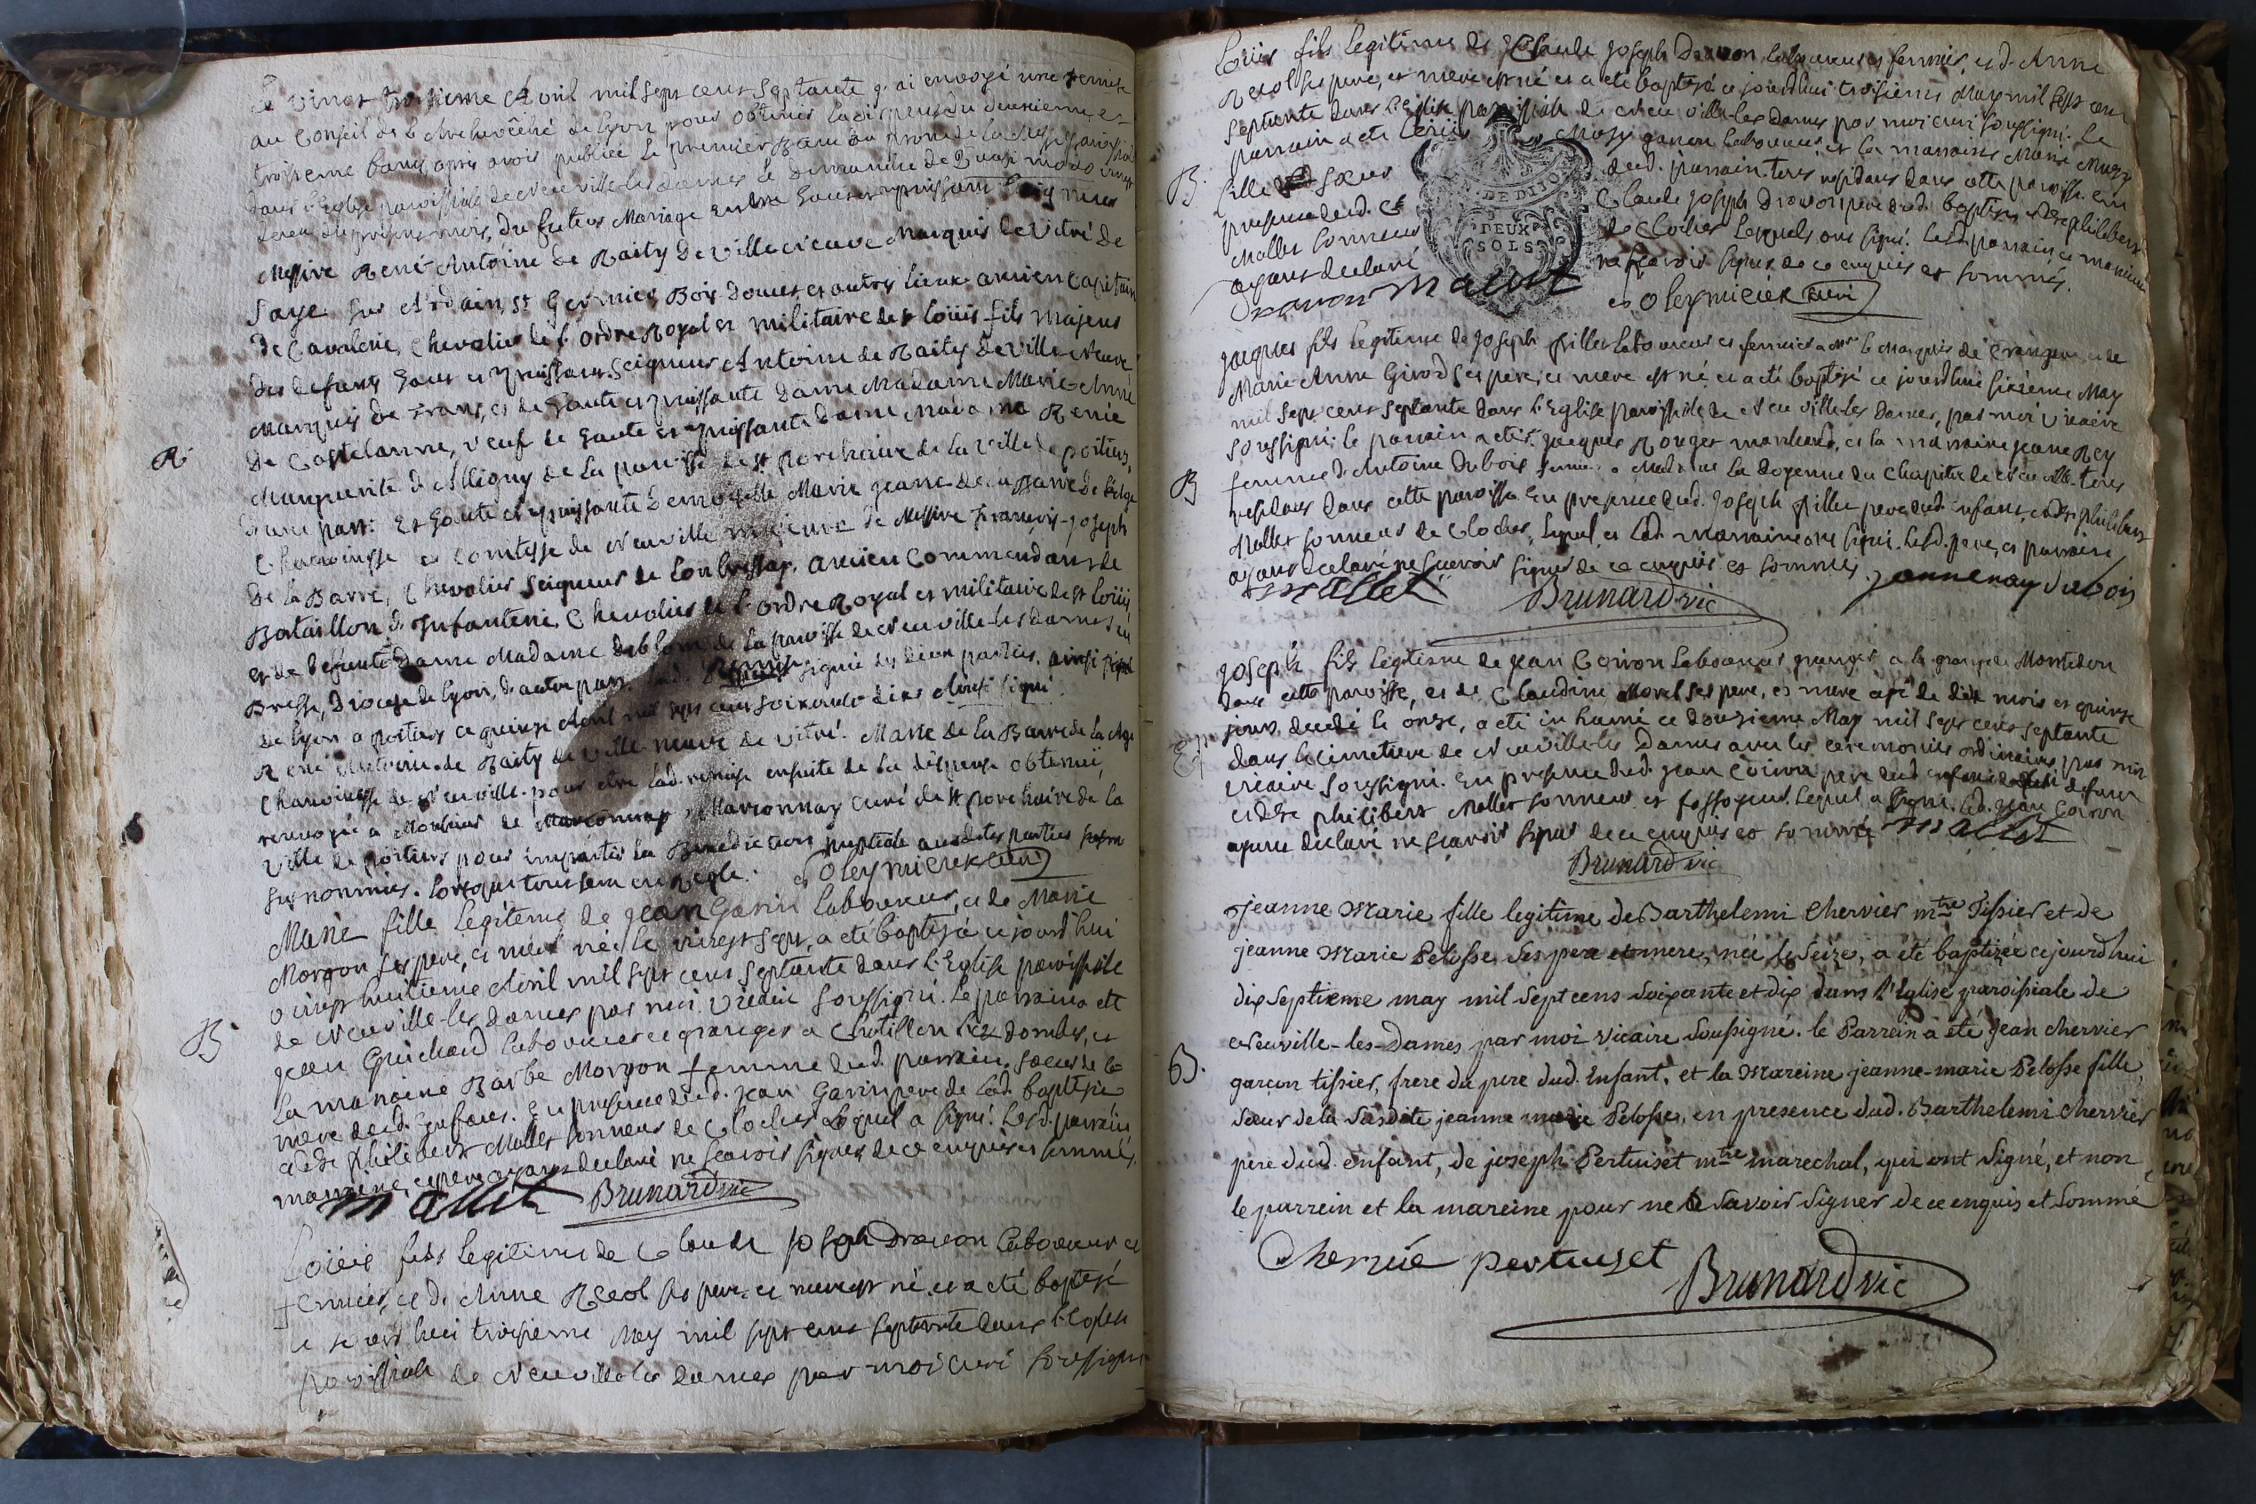 Le vingt troisieme Avril mil sept cent septante j'ai envoyé une remise
au Conseil de l'Archevêché de Lyon pour obtenir la dispense du deuxieme et
troisieme bans, apres avoir publiée le premier Ban au prone de la messe paroissiale
dans l'Eglise paroissiale de Neuville-les-dames le dimanche de Quasi modo vingt
du present mois, du futeur Mariage entre haut et puissant Seigneur
Messire René-Antoine de Raity de Villeneuve Marquis de Vitré de
Faye sur Ardain, St Germier Bois doucet et autres lieux ancien Capitaine
de Cavalerie, Chevalier de l'ordre Royal et militaire de st Loüis fils majeur
des defunts haut et puissant Seigneur Antoine de Raity de Ville-neuve
Marquis de Trans, et de haute et puissante dame Madame Marie-Anne
de Castelanne, veuf de haute et puissante dame Madame Renée
Marguerite d'Alligny de la paroisse de st porchaire de la Ville de poitiers,
R.
d'une part: Et haute et puissante Demoiselle Marie jeanne de la Barre de l'Age
Chanoinesse et Comtesse de Neuville mineure de Messire François-Joseph
De la Barre, Chevalier Seigneur de Loubressay, ancien Commendant de
Bataillon d'Infanterie, Chevalier de l'ordre Royal et militaire de st Loüis
et de defunte Dame Madame de la paroisse de Neuville-les-dames en
Bresse, Diocese de Lyon, d'autre part. Lad. Remise signée des deux parties. ainsi signé
de Lyon a poitiers ce quinze Avril mil sept cent soixante dix Ainsi signé
René Antoine de Raity de Ville-neuve de vitré. Marie de la Barre de la Age
Chanoinesse de Neuville. pour etre lad. remise ensuite de la dispense obtenüe,
renvoyée a Monsieur de Marconnay curé de st porchaire de la
Ville de poitiers pour impartir la Benediction nuptiale auxdites parties
surnommées. Lorsque tout sera en Regle. Oleymieux curé
Marie fille Legitime de Jean Garin Laboureur, et de Marie
Morgon ses pere, et mere née le vingt sept, a eté baptisée ce jourd'hui
vingt huitieme Avril mil sept cent septante dans l'Eglise paroissiale
B.
de Neuville-les dames par moi Vicaire soussigné. Le parrain a eté
jean Guichard laboureur et granger a Chatillon les dombes, et
la maraine Barbe Morgon femme dud. parrain, sœur de la
mere dud. Enfant. En presence dud. jean Garin pere de lad. baptisée
et de philibert Mallet sonneur de Cloches Lequel a signé. Led. parrain
maraine, et pere ayant declaré ne scavoir signer de ce enquis et sommés.
Mallet Brunard vic
Loüis fils legitime de Claude joseph Drevon laboureur et
fermier, et d'Anne Reol ses pere, et mere est né et a eté baptisé
ce jourd hui troisieme May mil sept cent septante dans l'Eglise
paroissiale de Neuville les dames par moi curé soussigné
Loüis fils legitime de Claude joseph Drevon laboureur et fermier, et d. Anne
Reol ses pere, et mere est né et a eté baptisé ce jourd'hui troisieme May mil sept cent
septente dans l'Eglise paroissiale de Neuville-les dames par moi curé soussigné. Le
parrain a eté Loüis garcon laboureur et la maraine Marie
B.
fille sœur dud. parrain. tous residans dans cette paroisse en
presence dud. Claude joseph Drevon pere dud. baptisé et de philibert
Mallet sonneur de Cloches lesquels ont signé. Lesd. parrain, et maraine
ayant declaré ne scavoir signer de ce enquis et sommés.
DE DIJON
DEUX
SOLS
Drevon Mallet Oleymieux curé
jacques fils Legitime de Joseph fillet laboureur et fermier a Mr le Marquis de et de
Marie Anne Girod ses pere, et mere est né et a eté baptisé ce jourd'hui sixieme May
mil sept cent septante dans l'Eglise paroissiale de Neuville-les dames, par moi Vicaire
soussigné. le parrain a eté jacques Rouger marchand, et la maraine jeane Rey
B
femme d'Antoine Dubois fermier a Madame la Doyenne du Chapitre de Neuville. tous
residans dans cette paroisse. En presence dud. Joseph fillet pere dud. enfant, et de philibert
Mallet sonneur de Cloches, lequel et lad. marraine ont signé. Lesd. pere, et parrain
ayant declaré ne scavoir signer de ce enquis et sommés.
Mallet Brunard vic Jannenay dubois
joseph fils Legitime de jean Coiron laboureur granger a la grange de Montedon
dans cette paroisse, et de Claudine Morel ses pere, et mere agé de dix mois et quinze
jours decedé le onze, a eté in humé ce douzieme May mil sept cent septante
dans le cimetiere de Neuville-les Dames avec les ceremonies ordinaires, par moi
vicaire soussigné. En presence dud. jean Coiron, pere dud. enfant defunt
et de philibert Mallet sonneur et fossoyeur. Lequel a signé. Led. jean Coiron
ayant declaré ne scavoir signer de ce enquis et sommé Mallet
Brunard vic
jeanne Marie fille legitime de Barthelemi Chervier mtre Tissier et de
jeanne Marie Pelosse, ses pere et mere, née le Seize, a été baptizée cejourd'hui
dix septieme may mil Sept cens Soixante et dix dans l'Eglise paroissiale de
Neuville-les-Dames par moi Vicaire Soussigné. le Parrein a été jean chervier
B.
garçon tissier, frere du pere dud. Enfant, et la Mareine jeanne-marie Pelosse fille,
sœur de la Susdite jeanne marie Pelosse, en presence dud. Barthelemi Chervier
pere dud. enfant, de joseph Pertuiset mtre marechal, qui ont Signé, et non
le parrein et la mareine pour ne le Savoir Signer de ce enquis et Sommé
Chervié pertuiset
Brunard vic